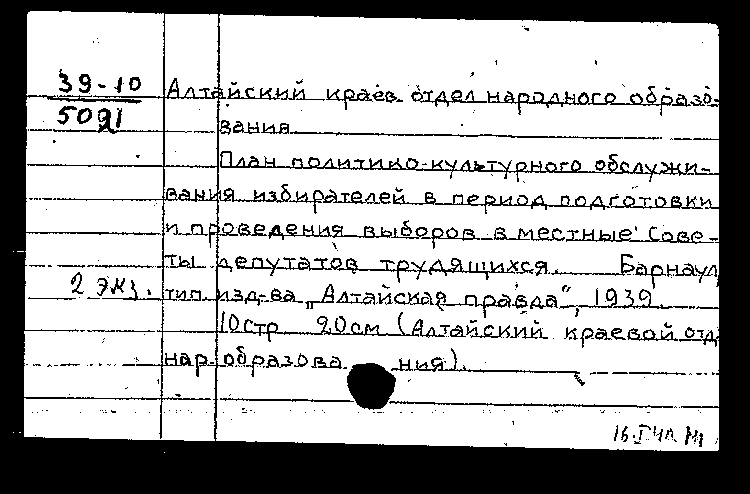 39-10
5021
Алтайский краев. отдел народного образо-
вания.
План политико-культурного обслужи-
вания избирателей в период подготовки
и проведения выборов в местные Сове-
ты депутатов трудящихся. Барнаул,
2 экз. тип. изд-ва "Алтайская правда", 1939.
10стр 20см (Алтайский краевой отд.
нар. образования).